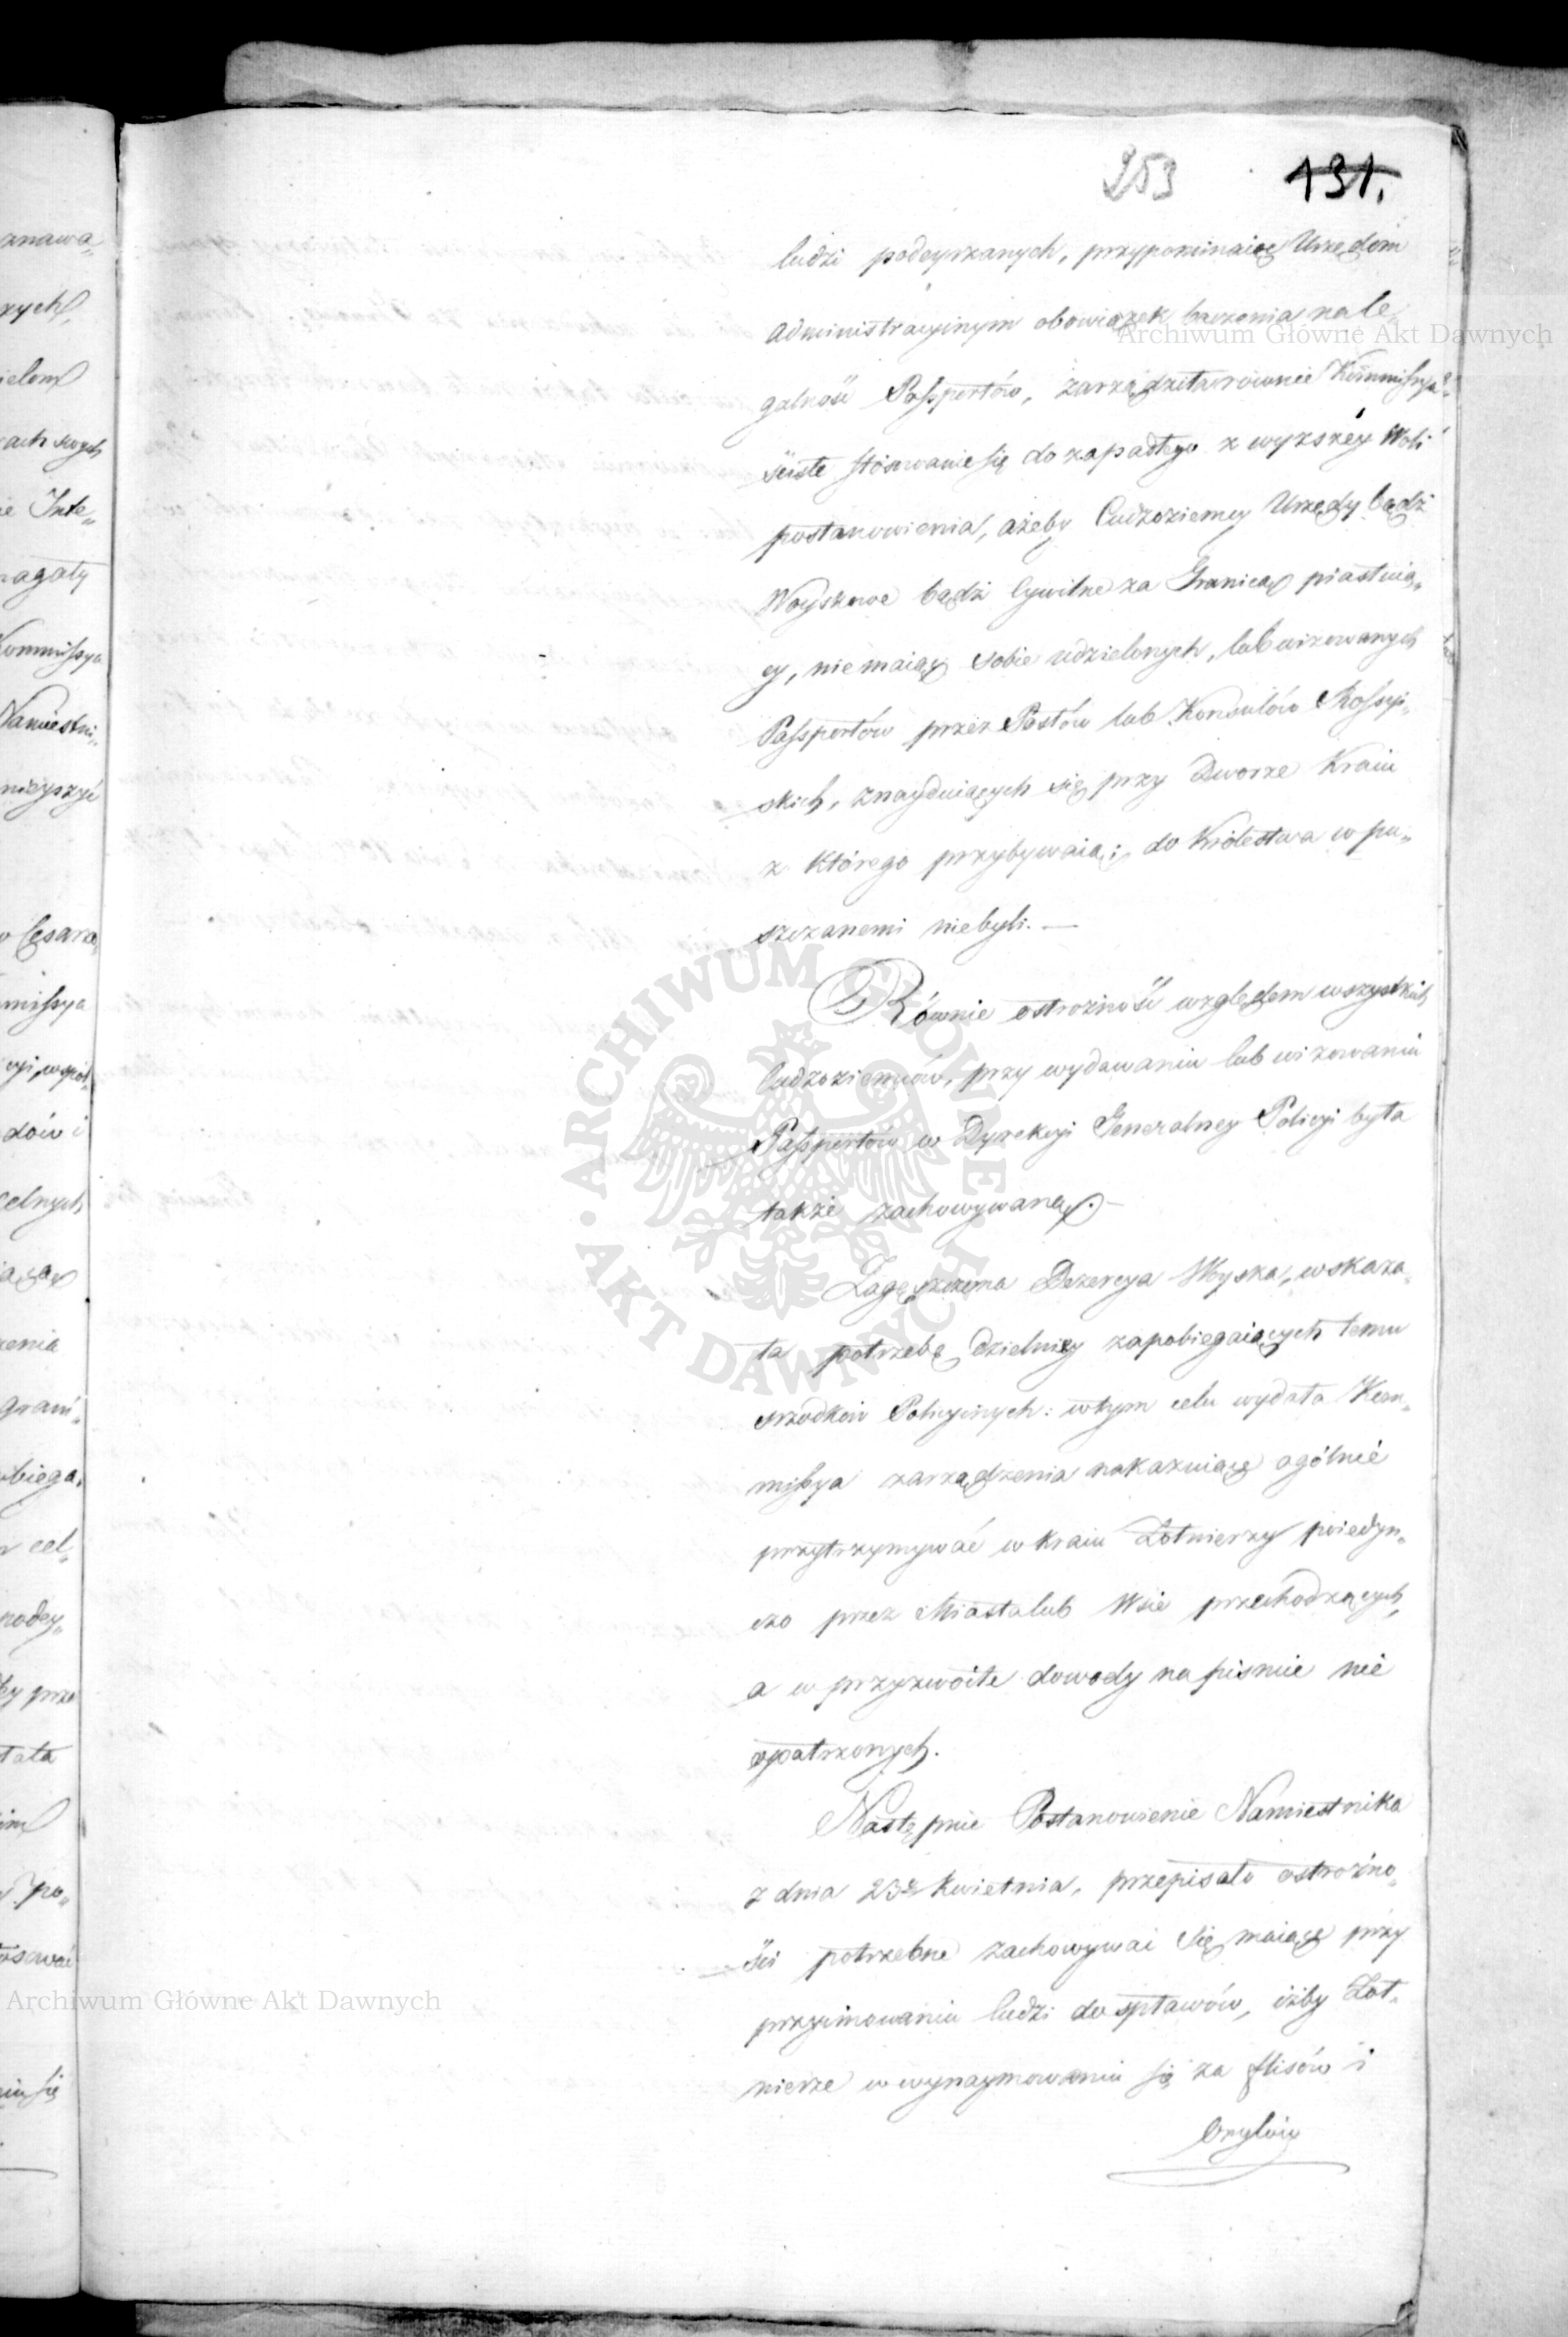 253 131.
ludzi podeyrzanych, przypominaiąc Urzędom
administracyinym obowiązek baczenia na le„
galność Passportów, zarządziła rownie Kommissya
ścisłe stósowanie się do zapadłego z wyższéy Woli
postanowienia, ażeby Cudzoziemcy Urzędy bądź
Woyskowe bądź Cywilne za Granicą piastuią„
cy, nie maiąc sobie udzielonych, lub wizowanych
Passportów przez Posłów lub Konsulów Rossyi„
skich, znayduiących się przy Dworze Kraiu
z którego przybywaią; do Królestwa wpu„
szczanemi niebyli. —
Równie ostrożność względem wszystkich
Cudzoziemców, przy wydawaniu lub wizowaniu
Passportów w Dyrekcyi Generalney Policyi była
także zachowywaną. —
Zagęszczona Dezercya Woyska, wskaza„
ła potrzebę dzielniey zapobiegaiących temu
srzodków Policyinych: w tym celu wydała Kom„
missya zarządzenia nakazuiące ogólnie
przytrzymywać w kraiu Żołnierzy poiedyn„
czo przez Miasta lub Wsie przechodzących,
a w przyzwoite dowody na pismie nie
opatrzonych.
Następnie Postanowienie Namiestnika
z dnia 23 Kwietnia, przepisało ostrożno„
ści potrzebne zachowywać się maiące przy
przyimowaniu ludzi do spławów, iżby Żoł„
nierze w wynaymowaniu się za flisów i
Orylów
znawa„
rzych,
ielom
ach swych
ie Inte„
magały
Kommissya
Namiestni„
nieyszyć
o Cesarz„
missya
cyi, wspól„
dów i
celnych
iącą
zenia
grani„
biega„
r cel„
podey„
by prze
tała
im
po„
osować
iu się
Archiwum Główne Akt Dawnych
ARCHIWUM GŁÓWNE · AKT DAWNYCH ·
Archiwum Główne Akt Dawnych